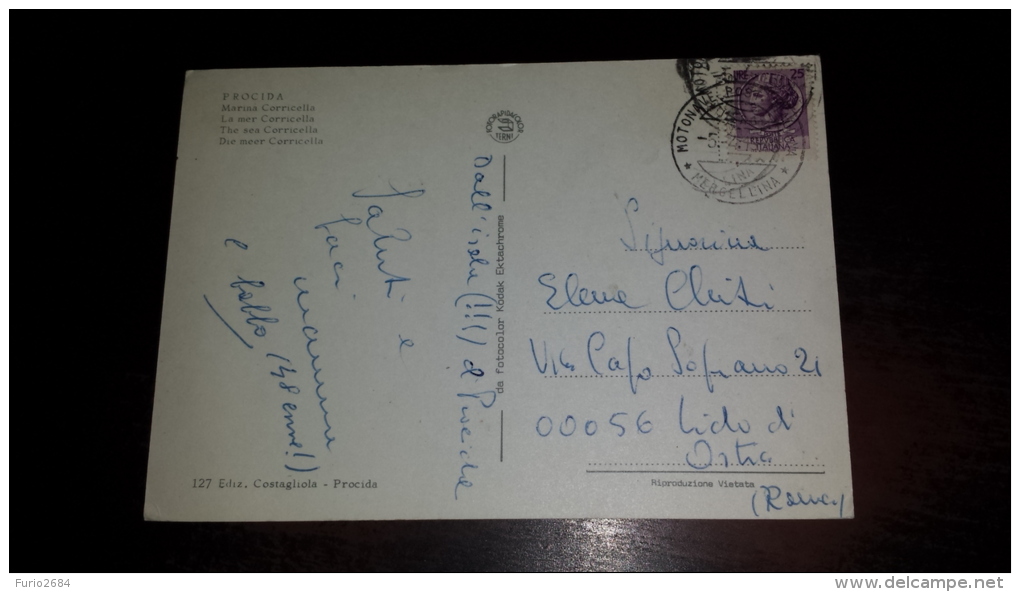 PROCIDA
Marina Corricella
La mer Corricella
The sea Corricella
Die meer Corricella
Dall'isola (!!!) di Procida
Saluti e
baci
mamma
e babbo (48enne!)
127 Ediz. Costagliola - Procida
FOTORAPIDACOLOR
TERNI
da fotocolor Kodak Ektachrome
25
LIRE
REPUBBLICA
ITALIANA
MERGELLINA
Signorina
Elena
Via Capo Soprano 21
00056 Lido di
Ostia
(Roma)
Riproduzione Vietata
Furio2684
delcampe.net